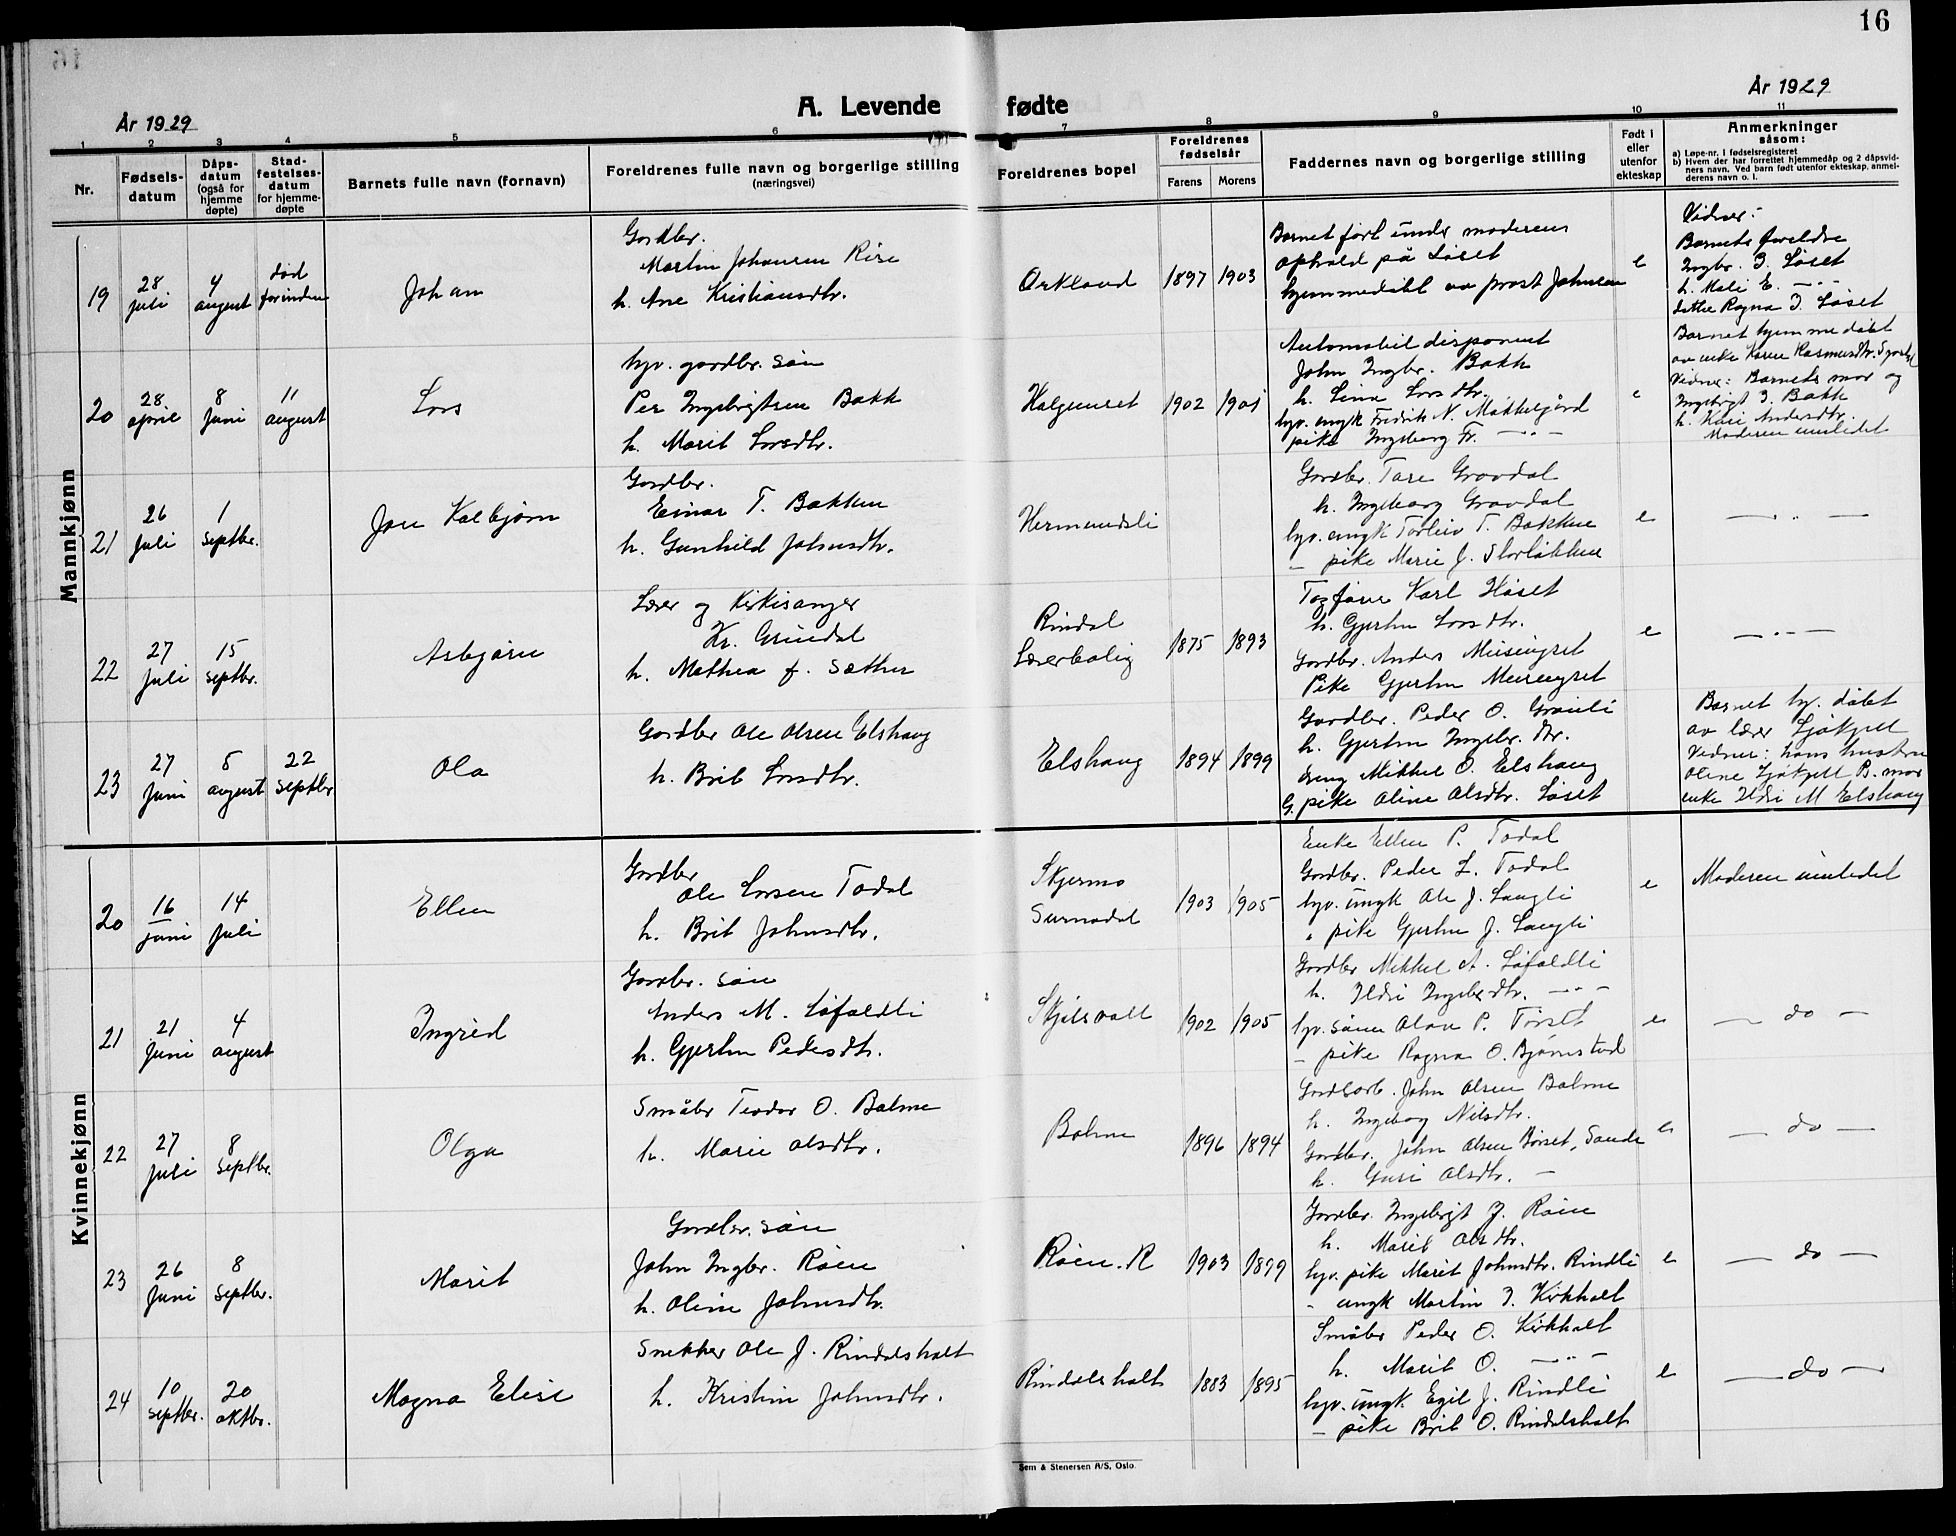 16
År 1929
A. Levende fødte
År 1929
1 2 3 4 5 6 7 8 9 10 11
Nr.
Fødsels-
datum
Dåps-
datum
(også for
hjemme
døpte)
Stad-
festelses-
datum
for hjemme-
døpte
Barnets fulle navn (fornavn)
Foreldrenes fulle navn og borgerlige stilling
(næringsvei)
Foreldrenes bopel
Foreldrenes
fødselsår
Farens Morens
Faddernes navn og borgerlige stilling
Født i
eller
utenfor
ekteskap
Anmerkninger
såsom:
a) Løpe-nr. i fødselsregisteret
b) Hvem der har forrettet hjemmedåp og 2 dåpsvid-
ners navn. Ved barn født utenfor ekteskap, anmel-
derens navn o. l.
Mannkjønn
19
28
juli
4
august
død
forinden
Johan
Gardbr.
Martin Johansen Rise
h. Ane Kristiansdtr.
Orkland
1897 1903
Barnet født under moderens
ophold på Løset
hjemmedøbt av prost Johnsen
e
Vidner:
Barnets foreldre
Ingbr. J. Løset
h. Mali E. -"-
datter Ragna J. Løset
20
28
april
8
juni
11
august
Lars
hjv. gardbr. søn
Per Ingebrigtsen Bakk
h. Marit Larsdtr.
Halgunset
1902 1901
Automobil disponent
John Ingbr. Bakk
h. Lina Larsdtr.
hjv. ungk Fredrik N. Møkkelgård
pike Ingeborg Fr. -"-
e
Barnet hjemmedøbt
av enke Karen Rasmusdtr.
Vidner: Barnets mor og
Ingebrigt J. Bakk
h. Kari Andersdtr.
Moderen innledet
21
26
juli
1
septbr.
Jon Kolbjørn
Gardbr.
Einar T. Bakken
h. Gunhild Johnsdtr.
Hermundsli
Gardbr. Tore Gravdal
h. Ingeborg Gravdal
hjv. ungk Torleiv T. Bakken
- pike Marie J. Storløkken
e
— " —
22
27
juli
15
septbr.
Asbjørn
Lærer og Kirkesanger
Kr. Grindal
h. Mathea f. Sæther
Rindal
Lærerbolig
1875 1893
Karl Høset
h. Gjertru Larsdtr.
Gardbr. Anders
Pike Gjertru
e
— " —
23
27
juni
5
august
22
septbr
Ola
Gardbr Ole Olsen Elshaug
h. Brit Larsdtr.
Elshaug
1894 1899
Gardbr. Peder O. Granli
h. Gjertru Ingebr. dtr.
dreng Mikkel O. Elshaug
G. pike Oline Olsdtr. Løset
Barnet hj. døbt
av lærer Sjøkjell
Vidner: hans hustru
Oline Sjøkjell B. mor
enke Ildri M Elshaug
Kvinnekjønn
20
16
juni
14
juli
Ellen
Gardbr
Ole Larsen Todal
h. Brit Johnsdtr.
Skjermo
Surnadal
1903 1905
Enke Ellen P. Todal
Gardbr. Peder L. Todal
hjv. ungk Ole J. Langli
" pike Gjertru J. Langli
e
Moderen innledet
21
21
juni
4
august
Ingrid
Gardbr. søn
Anders M. Løfaldli
h. Gjertru Pedersdtr.
Skjølsvoll
1902 1905
Gardbr Mikkel A. Løfaldli
h. Ildri Ingebrdtr. -"-
hjv. sønn Olav P. Tørset
- pike Ragna O. Bjørnstad
e
— do —
22
27
juli
8
septbr.
Olga
Småbr Teodor O. Bolme
h. Marie Olsdtr.
Bolme
1896 1894
John Olsen Bolme
h. Ingeborg Nilsdtr.
Gardbr. John Olsen Børset, Sande
h. Guri Olsdtr. -
e
— do —
23
26
juni
8
septbr.
Marit
Gardbr. søn
John Ingbr. Røen
h. Oline Johnsdtr.
Røen. R
1903 1899
Gardbr. Ingebrigt J. Røen
h. Marit Olsdtr.
hjv. pike Marit Johnsdtr. Rindli
- ungk Martin J. Kirkholt
e
— do —
24
10
septbr.
20
oktbr.
Magna Elise
Snekker Ole J. Rindalsholt
h. Kristin Johnsdtr.
Rindalsholt
1883 1895
Småbr Peder O. Kirkholt
h. Marit O. -"-
hjv. ungk. Egil J. Rindli
- pike Brit O. Rindalsholt
e
— do —
Sem & Stenersen A/S, Oslo.